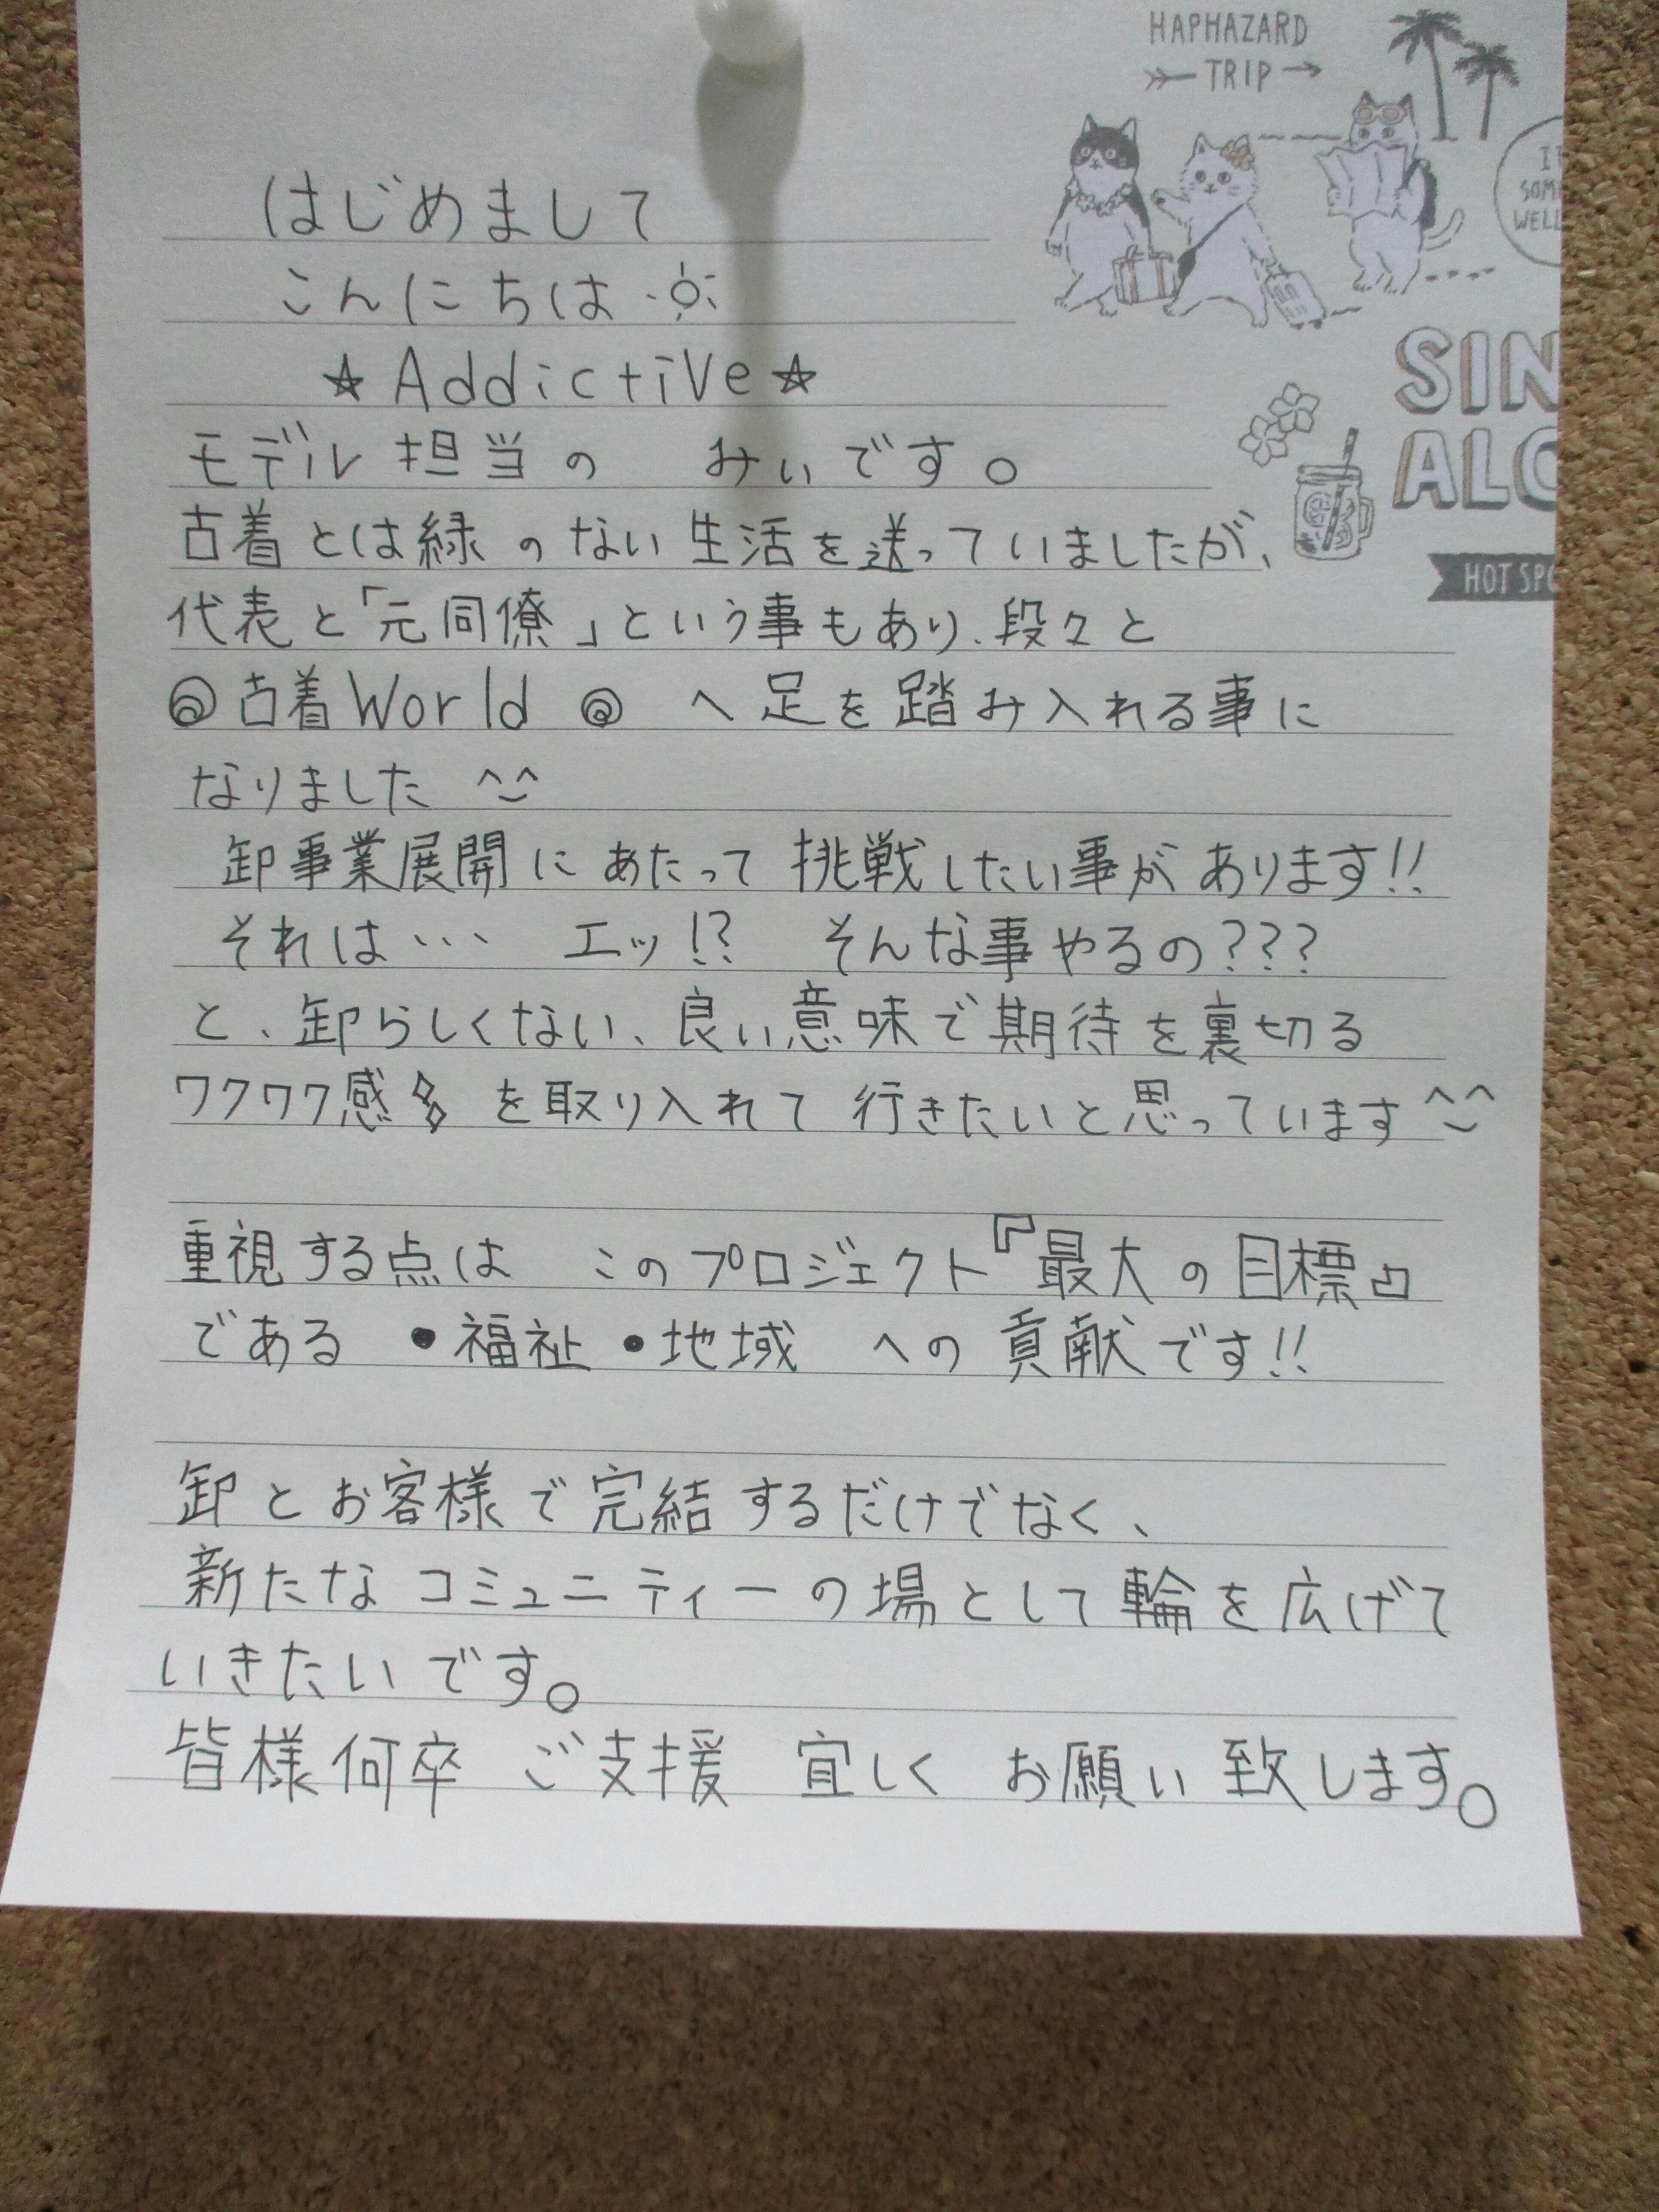 HAPHAZARD
TRIP
SIN
ALO
HOT SPO
はじめまして
こんにちは
☆Addictive☆
モデル担当の みぃです。
古着とは緑のない生活を送っていましたが、
代表と「元同僚」という事もあり、段々と
◎古着World ◎ へ足を踏み入れる事に
なりました ^^
卸事業展開にあたって 挑戦したい事があります!!
それは… エッ!? そんな事やるの???
と、卸らしくない、良い意味で期待を裏切る
ワクワク感 を取り入れて 行きたいと思っています^^
重視する点は このプロジェクト『最大の目標』
である ・福祉 ・地域 への貢献です!!
卸とお客様で完結するだけでなく、
新たなコミュニティーの場として輪を広げて
いきたいです。
皆様何卒 ご支援 宜しく お願い致します。